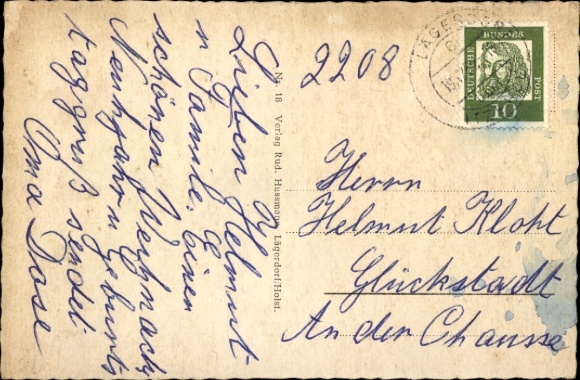 Lieben Helmut
u Familie. einen
schönen Weihnach
Neuhjahr u Geburts
taggruß sendet
Oma Dose
No. 18 Verlag Rud. Hussmann, Lägerdorf/Holst.
2208
LÄGERDORF
DEUTSCHE BUNDESPOST
10
Herrn
Helmut Kloht
Glückstadt
An der Chausse